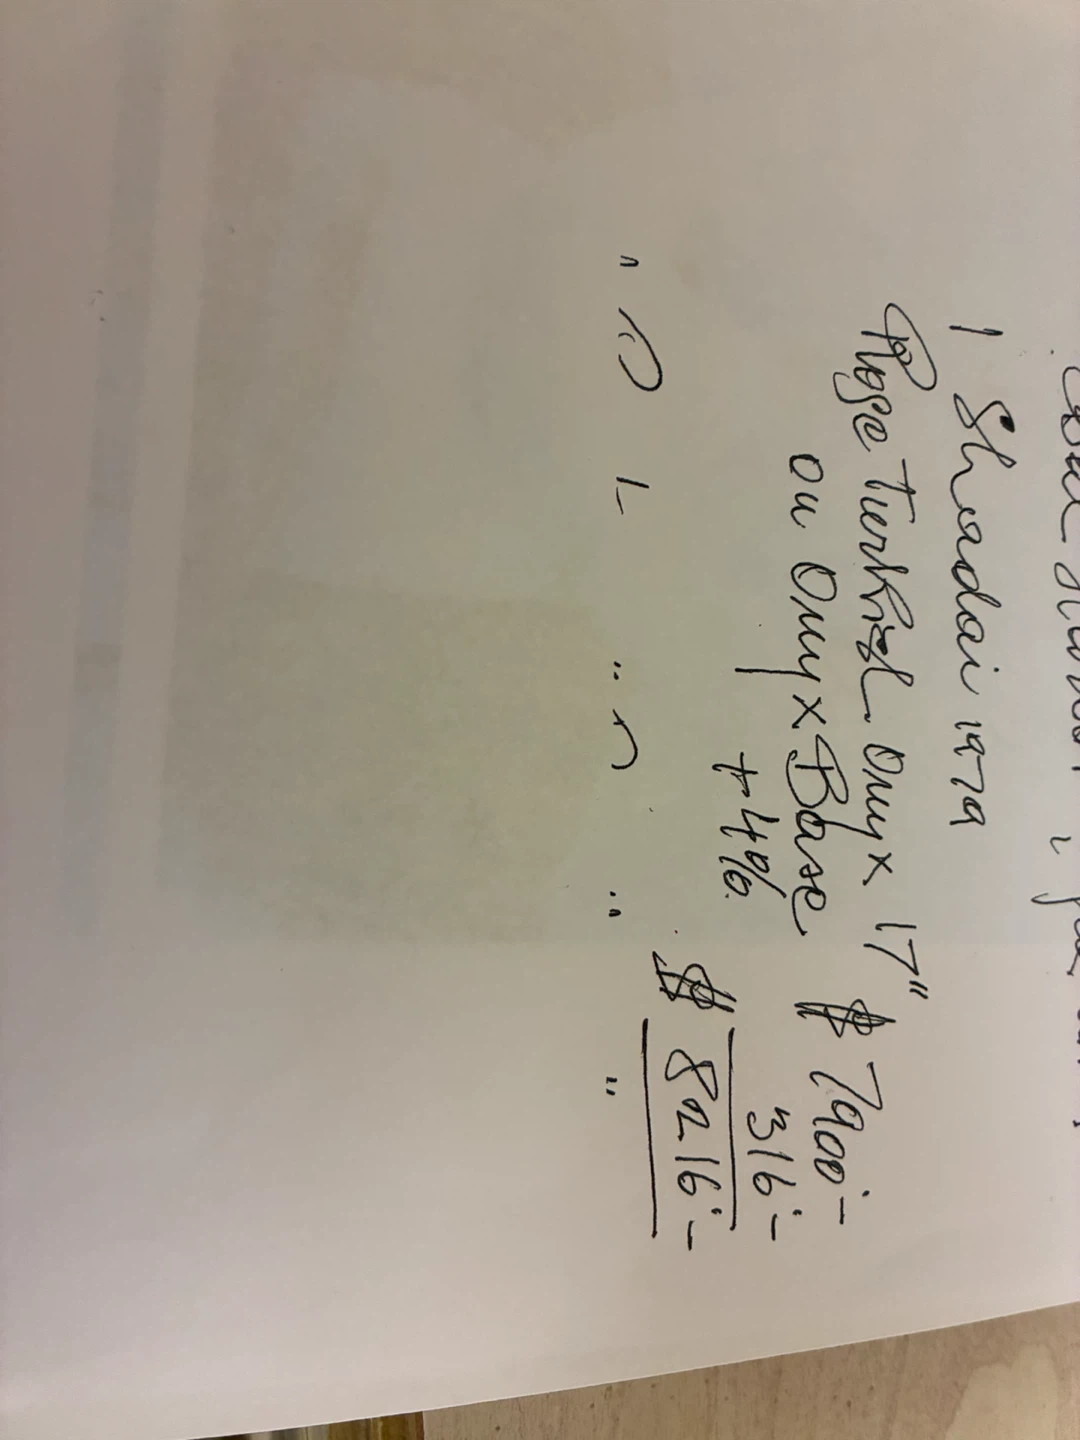 1 Shadai 1979
Rose Turkish Onyx 17"
on Onyx Base $ 7900.-
+ 4% 316.-
$ 8216.-